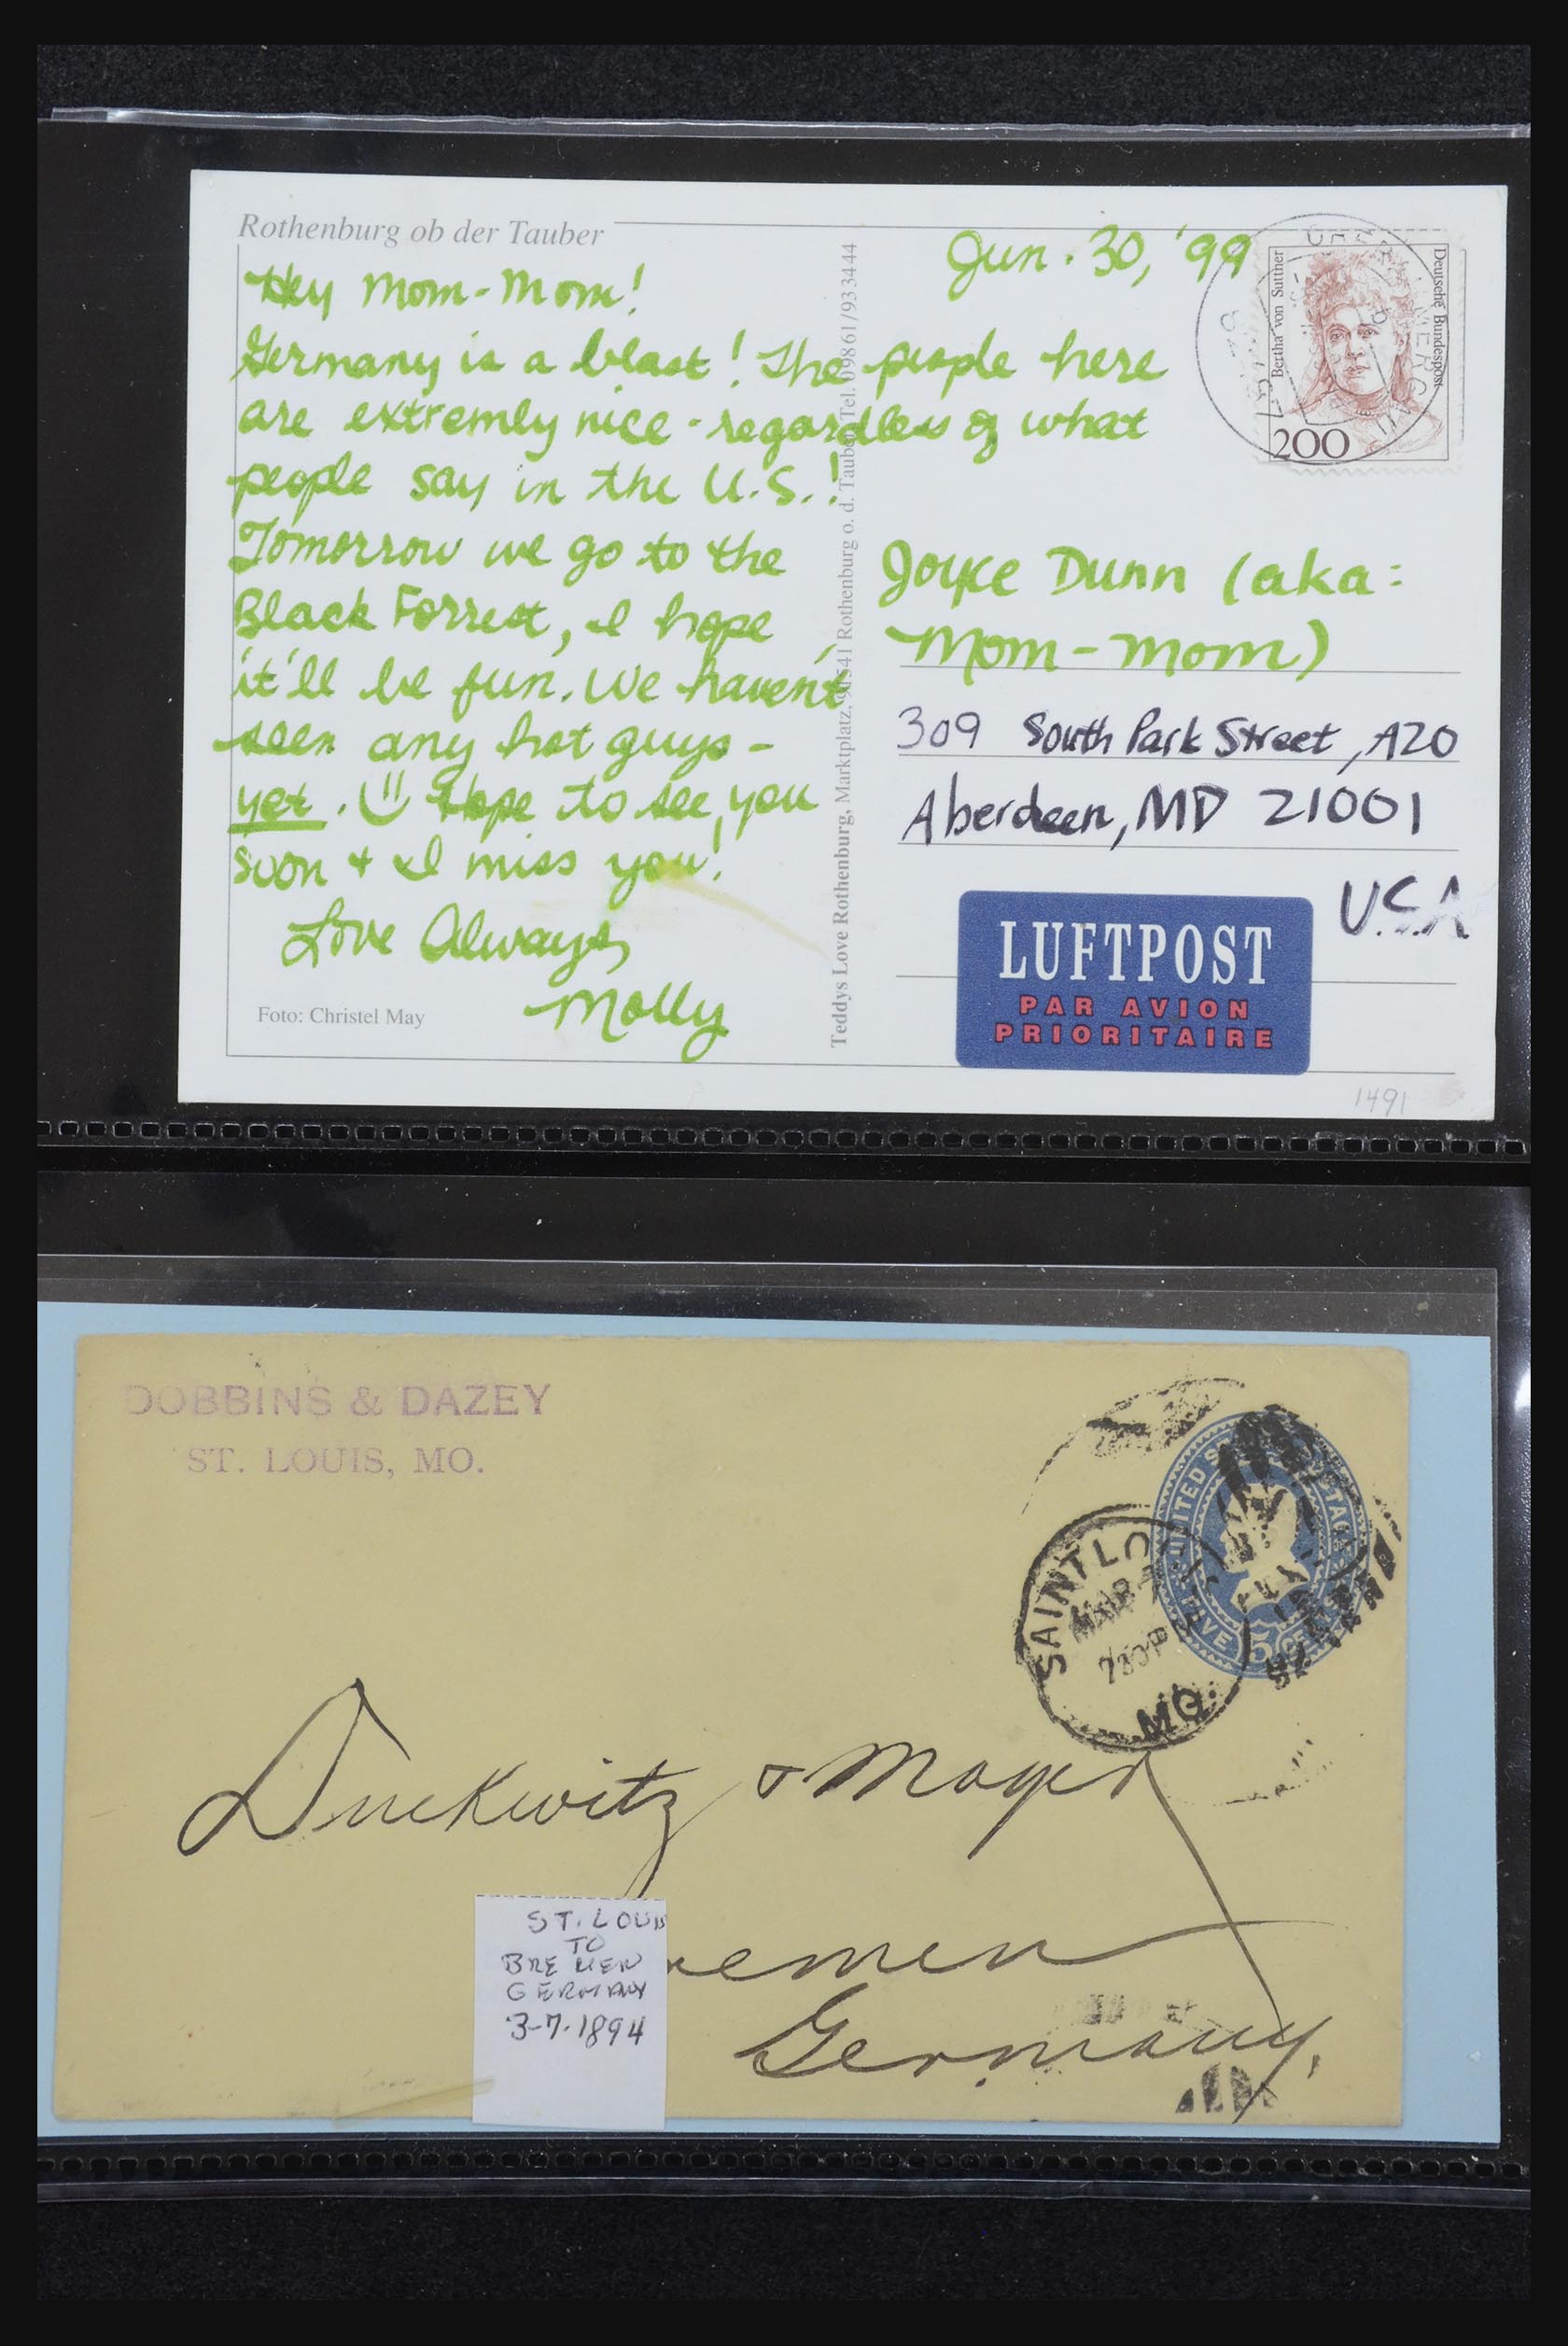 Rothenburg ob der Tauber
Jun. 30, '99
Hey Mom-Mom!
Germany is a blast! The people here
are extremly nice - regardless of what
people say in the U.S.!
Tomorrow we go to the
Black Forrest, I hope
it'll be fun. We haven't
seen any hot guys -
yet. Hope to see you
soon + I miss you!
Love Always,
Molly
Foto: Christel May
Teddys Love Rothenburg, Marktplatz, 91541 Rothenburg o. d. Tauber, Tel. 09861/933444
Bertha von Suttner
Deutsche Bundespost
200
Joyce Dunn (aka:
Mom-Mom)
309 South Park Street, A20
Aberdeen, MD 21001
U.S.A
LUFTPOST
PAR AVION
PRIORITAIRE
1491
DOBBINS & DAZEY
ST. LOUIS, MO.
SAINT LO
MAR 7
730 P
MO.
UNITED
FIVE 5
Duckwitz & Mayer
emen
Germany,
ST. LOUIS
TO
BREMEN
GERMANY
3-7-1894